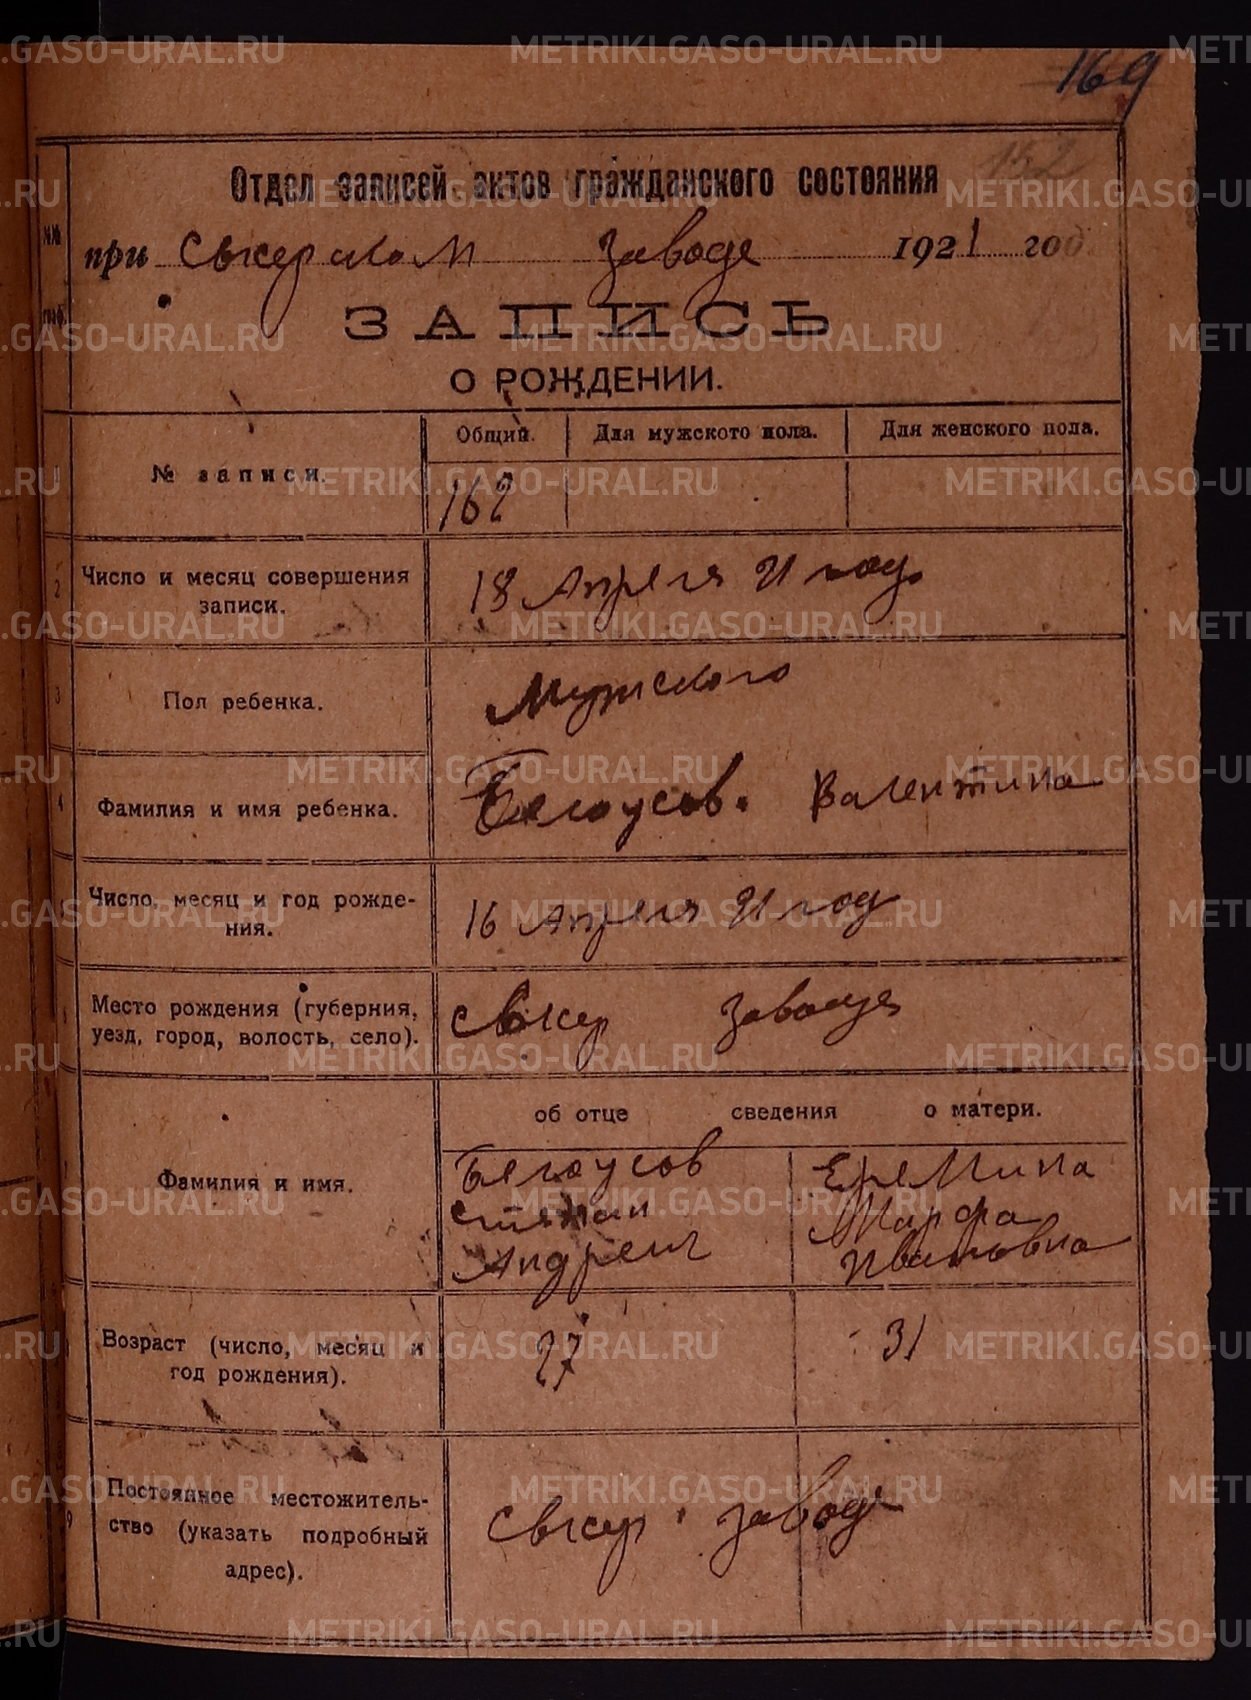 169
152
Отдел записей актов гражданского состояния
№№
при Сысерском заводе 1921 год
граф
ЗАПИСЬ
О РОЖДЕНИИ.
№ записи.
Общий. Для мужского пола. Для женского пола.
162
2 Число и месяц совершения записи.
18 Апреля 21 году
3 Пол ребенка.
Мужского
4 Фамилия и имя ребенка.
Белоусов. Валентина
Число, месяц и год рожде-
ния.
16 Апреля 21 году
Место рождения (губерния,
уезд, город, волость, село).
Сысер заводе
об отце сведения о матери.
Фамилия и имя.
Белоусов
Степан
Андреич
Еремина
Марфа
Ивановна
Возраст (число, месяц и
год рождения).
27
31
9 Постоянное местожитель-
ство (указать подробный
адрес).
Сысер заводе
METRIKI.GASO-URAL.RU